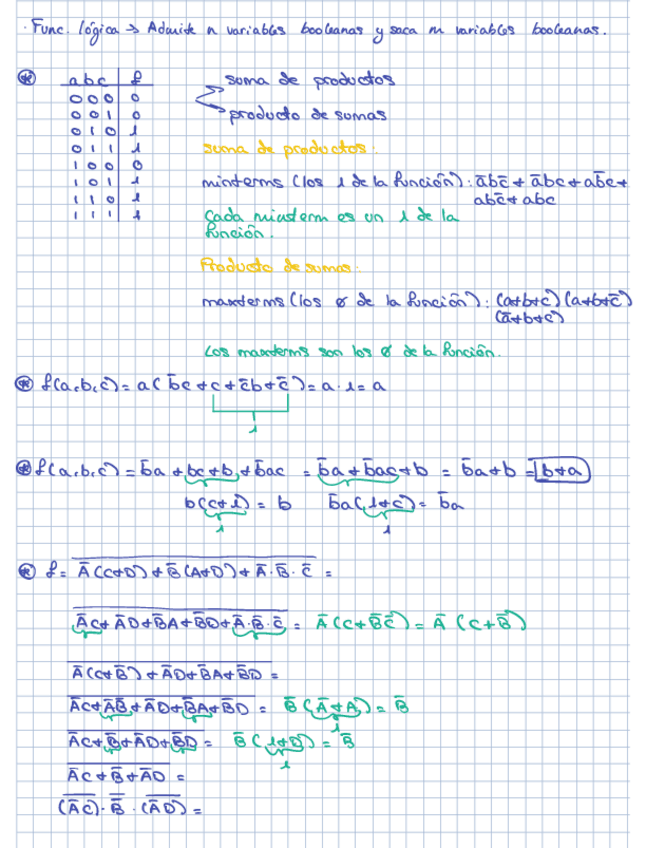 · Func. lógica → Admite n variables booleanas y saca m variables booleanas.
⊛ a b c | f
0 0 0 | 0
0 0 1 | 0
0 1 0 | 1
0 1 1 | 1
1 0 0 | 0
1 0 1 | 1
1 1 0 | 1
1 1 1 | 1
suma de productos
producto de sumas
suma de productos:
minterms (los 1 de la función): a̅bc̅ + a̅bc + ab̅c +
abc̅ + abc
Cada minterm es un 1 de la
función.
Producto de sumas:
maxterms (los 0 de la función): (a+b+c)(a+b+c̅)
(a̅+b+c)
Los maxterms son los 0 de la función.
⊛ f(a,b,c) = a(b̅c + c + c̅b + c̅) = a · 1 = a
1
⊛ f(a,b,c) = b̅a + bc + b + b̅ac = b̅a + b̅ac + b = b̅a + b = b+a
b(c+1) = b b̅a(1+c) = b̅a
1 1
⊛ f = \overline{A̅(C+D) + B̅(A+D) + A̅·B̅·C̅} =
\overline{A̅C + A̅D + B̅A + B̅D + A̅·B̅·C̅} = A̅(C+B̅C̅) = A̅(C+B̅)
\overline{A̅(C+B̅) + A̅D + B̅A + B̅D} =
\overline{A̅C + A̅B̅ + A̅D + B̅A + B̅D} = B̅(A̅+A) = B̅
1
\overline{A̅C + B̅ + A̅D + B̅D} = B̅(1+D) = B̅
1
\overline{A̅C + B̅ + A̅D} =
\overline{(A̅C)} · \overline{B̅} · \overline{(A̅D)} =